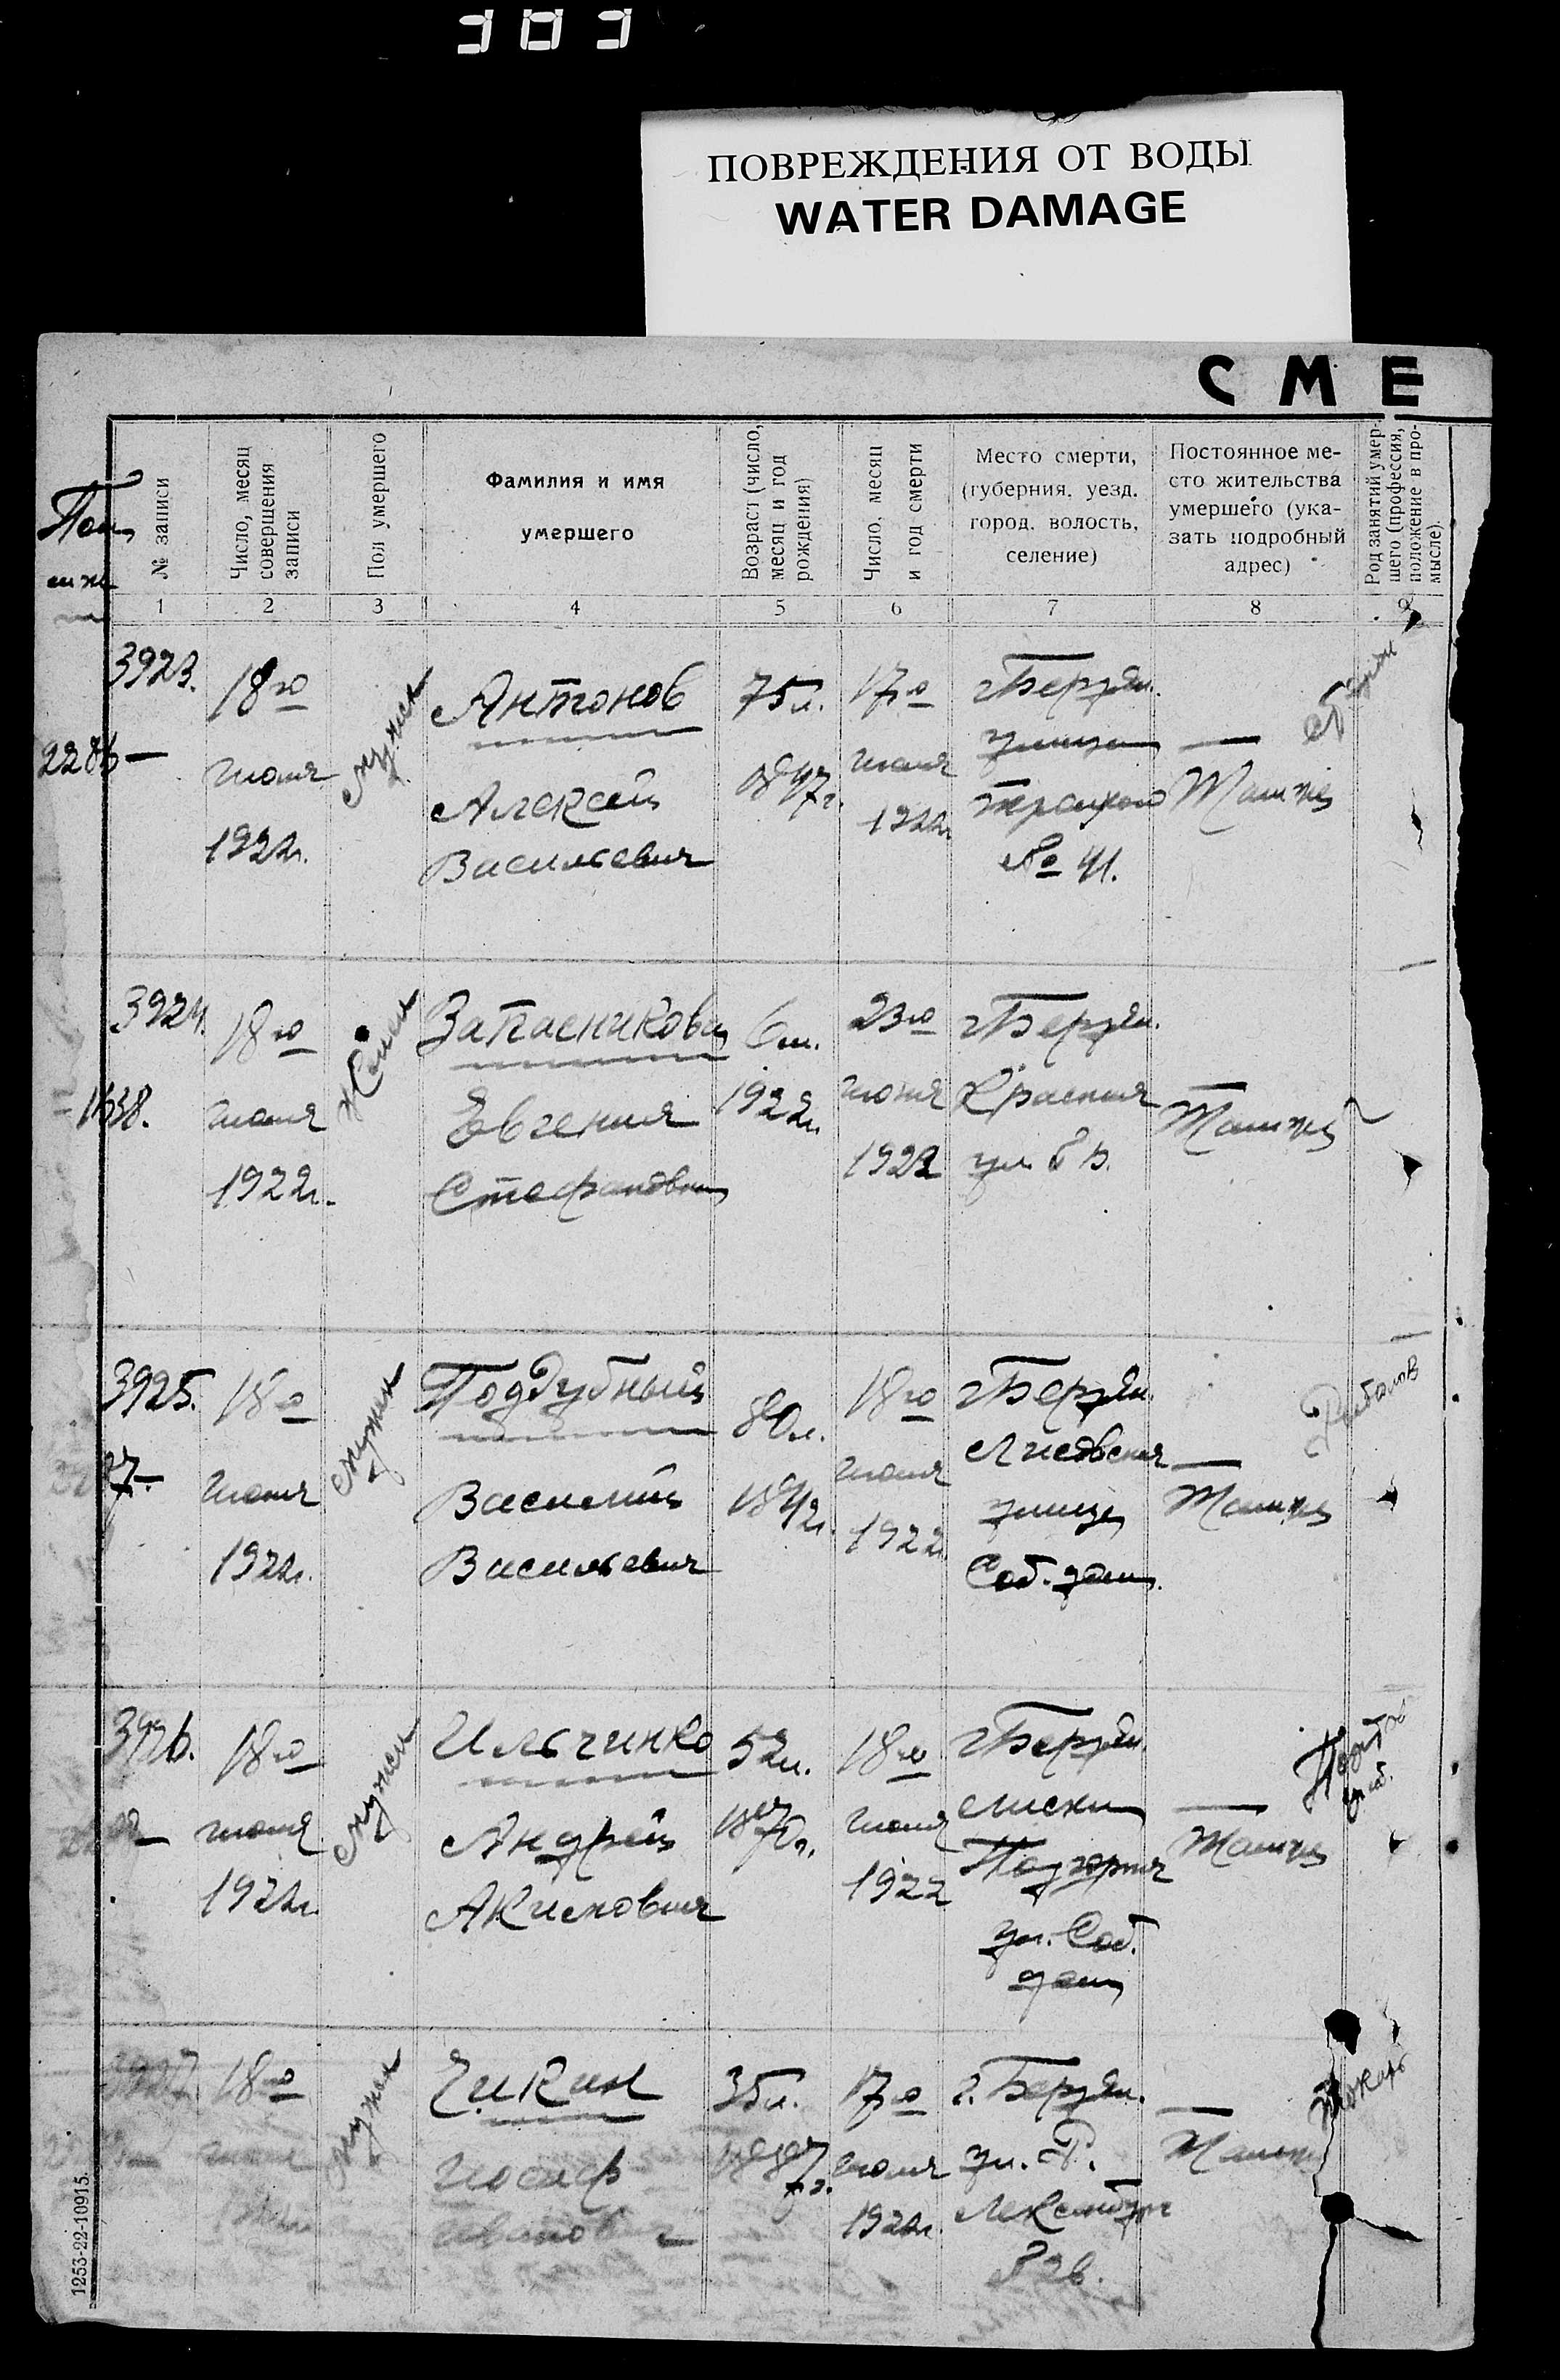 303
ПОВРЕЖДЕНИЯ ОТ ВОДЫ
WATER DAMAGE
СМЕ
№ записи
Число, месяц совершения записи
Пол умершего
Фамилия и имя
умершего
Возраст (число, месяц и год рождения)
Число, месяц и год смерти
Место смерти,
(губерния, уезд,
город, волость,
селение)
Постоянное ме-
сто жительства
умершего (ука-
зать подробный
адрес)
Род занятий умер-
шего (профессия,
положение в про-
мысле).
1 2 3 4 5 6 7 8 9
3923.
18го
июня
1922г.
мужск
Антонов
Алексей
Васильевич
75л.
1847г.
17го
июня
1922г
г Бердян.
улица
Троцкого
№ 41.
Там же
3924.
1638.
18го
июня
1922г.
Женск
Запасникова
Евгения
Стефановна
6м.
1922г.
23го
июня
1922
г Бердян.
Красная
ул.
Там же
3925.
27
18го
июня
1922г.
мужск
Поддубный
Василий
Васильевич
80л.
1842г.
18го
июня
1922г
г Бердян.
Лисовская
улица
Соб. дом.
Там же
Рыболов
3926.
18го
июня
1922г.
мужск
Ильченко
Андрей
Акимович
52л.
1870г.
18го
июня
1922
г Бердян.
Лиски
Подгорная
ул. Соб.
дом
Там же
3927
18го
июня
мужск
Чикин
Иосиф
Иванович
35л.
1887г.
17го
июня
1922г.
г. Бердян.
ул. Р.
Там же
Токарь
1253-22-10915.